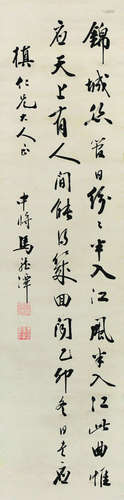 錦城絲管日紛〻半入江風半入江此曲惟
應天上有人間能得幾回聞乙卯冬日書應
仁兄大人正
中將馬龍潭